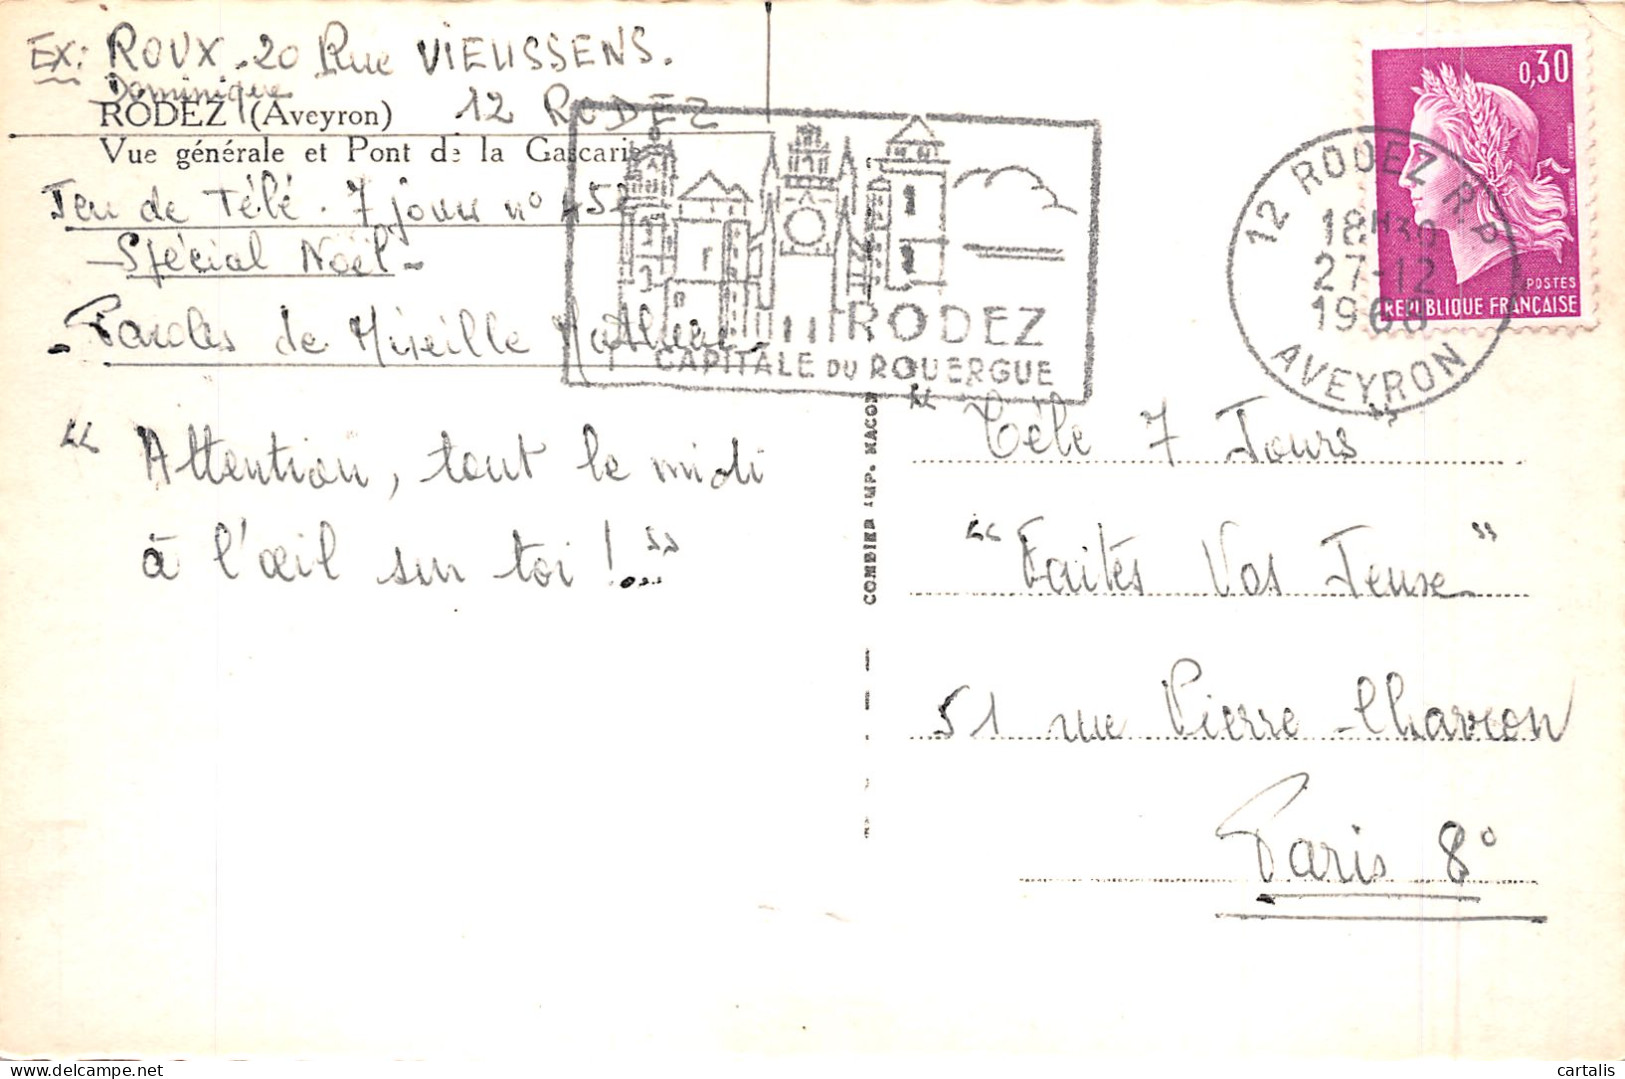 EX: ROUX - 20 Rue VIEUSSENS.
Dominique
RODEZ (Aveyron) 12 RODEZ
Vue générale et Pont de la Gascarie
Jeu de Télé. 7 jour n° 452
- Spécial Noël -
- Paroles de Mireille Mathieu -
" Attention, tout le midi
à l'œil sur toi !..."
RODEZ
CAPITALE DU ROUERGUE
COMBIER IMP. MACON
0,30
POSTES
REPUBLIQUE FRANÇAISE
12 RODEZ R.P
18H30
27-12
1968
AVEYRON
" Télé 7 Jours "
" Faites Vos Jeux "
51 rue Pierre-Charron
Paris 8°
cartalis